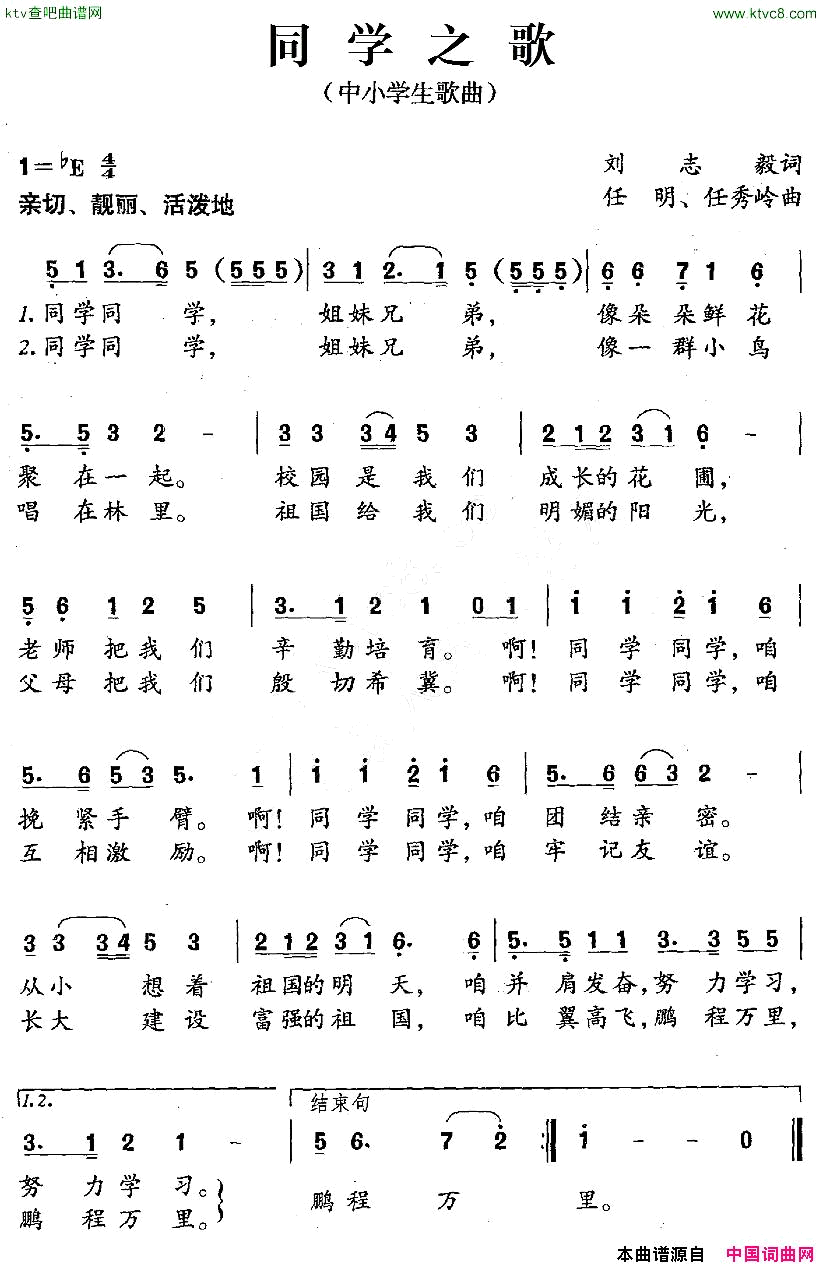 ktv查吧曲谱网
www.ktvc8.com
同学之歌
（中小学生歌曲）
1=♭E 4/4
刘志毅词
亲切、靓丽、活泼地
任明、任秀岭曲
5 1 3. 6 5 (5 5 5) | 3 1 2. 1 5 (5 5 5) | 6 6 7 1 6 |
1.同学同学，姐妹兄弟，像朵朵鲜花
2.同学同学，姐妹兄弟，像一群小鸟
5. 5 3 2 - | 3 3 3 4 5 3 | 2 1 2 3 1 6 - |
聚在一起。校园是我们成长的花圃，
唱在林里。祖国给我们明媚的阳光，
5 6 1 2 5 | 3. 1 2 1 0 1 | i i 2 i 6 |
老师把我们辛勤培育。啊！同学同学，咱
父母把我们殷切希冀。啊！同学同学，咱
5. 6 5 3 5. 1 | i i 2 i 6 | 5. 6 6 3 2 - |
挽紧手臂。啊！同学同学，咱团结亲密。
互相激励。啊！同学同学，咱牢记友谊。
3 3 3 4 5 3 | 2 1 2 3 1 6. 6 | 5. 5 1 1 3. 3 5 5 |
从小想着祖国的明天，咱并肩发奋，努力学习，
长大建设富强的祖国，咱比翼高飞，鹏程万里，
1.2.
结束句
3. 1 2 1 - | 5 6. 7 2 :‖ i - - 0 ‖
努力学习。
鹏程万里。
鹏程万里。
本曲谱源自 中国词曲网